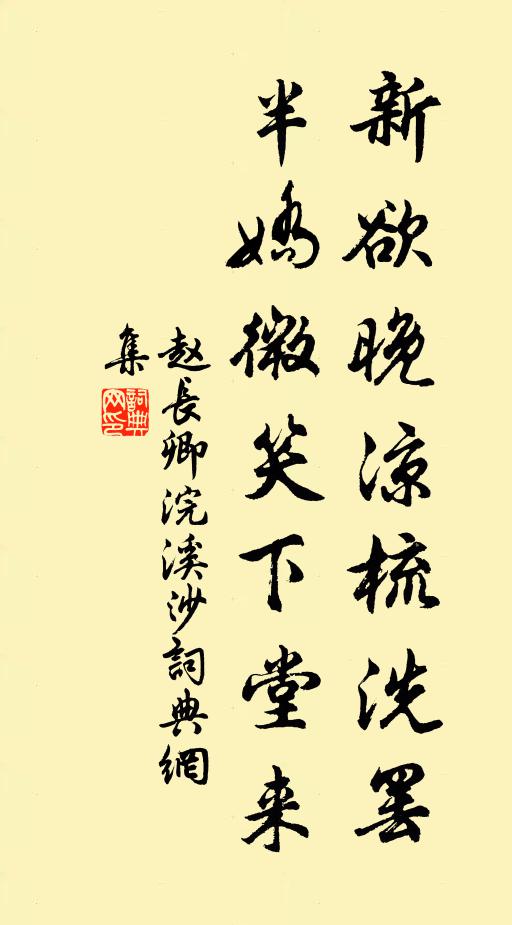 新欲晚凉梳洗罢
半娇微笑下堂来
赵長卿浣溪沙詞典網
集
詞典
网印